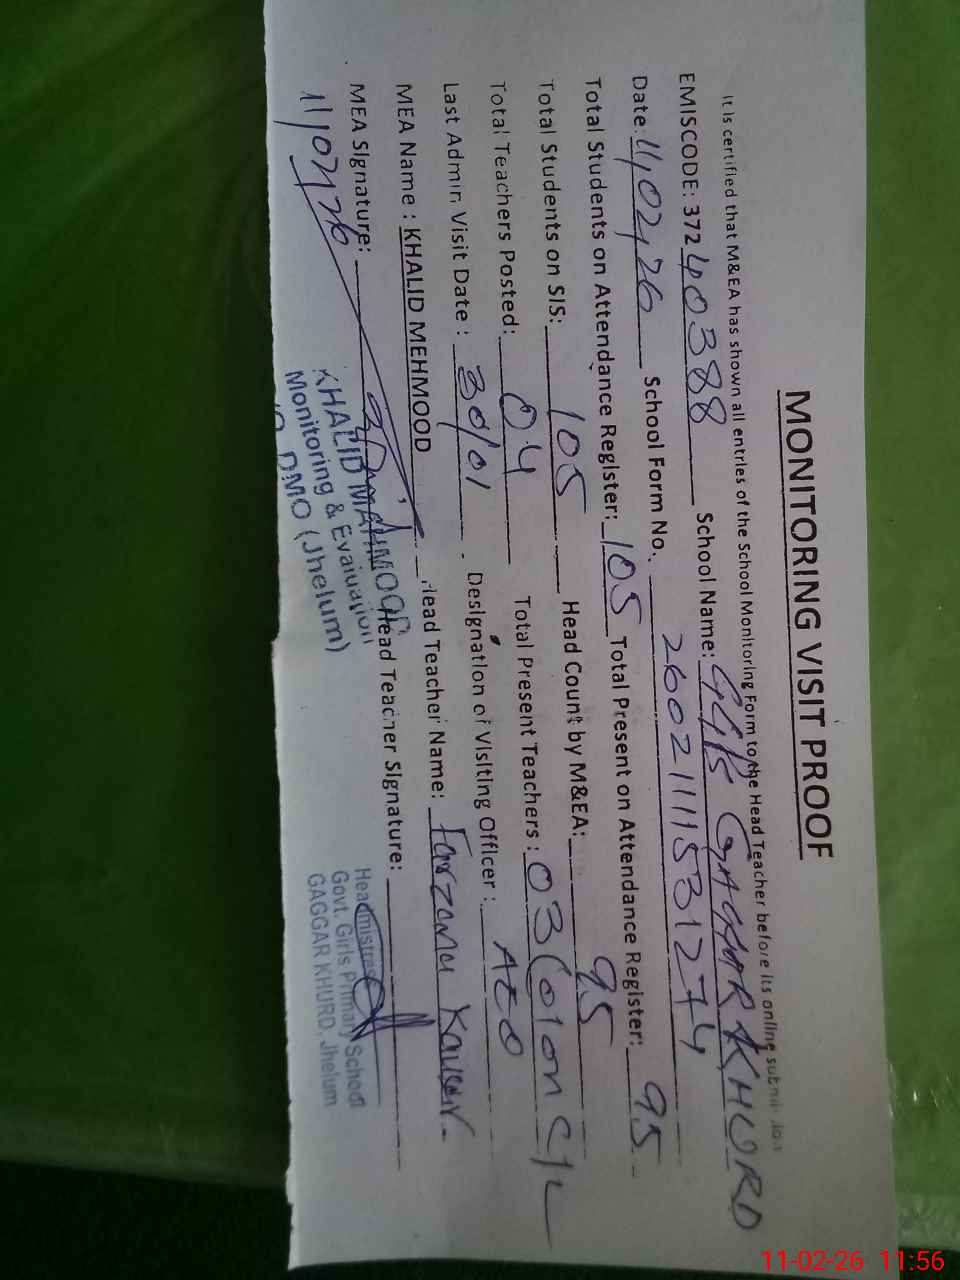 MONITORING VISIT PROOF
It is certified that M&EA has shown all entries of the School Monitoring Form to the Head Teacher before its online submission
EMISCODE: 37240388 School Name: GGPS GAGGAR KHURD
Date: 11/02/26 School Form No. 260021111531274
Total Students on Attendance Register: 105 Total Present on Attendance Register: 95
Total Students on SIS: 105 Head Count by M&EA: 95
Total Teachers Posted: 04 Total Present Teachers: 03(01 on C/L
Last Admin Visit Date: 30/01 Designation of Visiting Officer: AEO
MEA Name: KHALID MEHMOOD Head Teacher Name: Farzana Kausar.
MEA Signature: Head Teacher Signature:
11/02/26
KHALID MAHMOOD
Monitoring & Evaluation
DMO (Jhelum)
Headmistress
Govt. Girls Primary School
GAGGAR KHURD, Jhelum
11-02-26 11:56